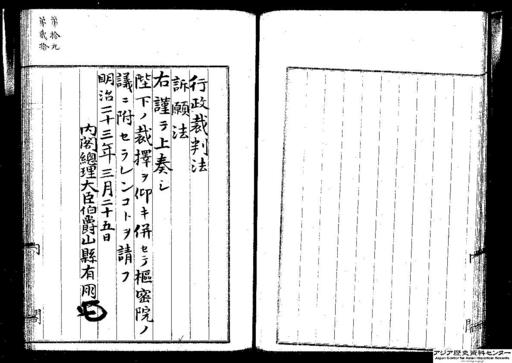 第拾九
第貳拾
行政裁判法
訴願法
右謹テ上奏シ
陛下ノ裁擇ヲ仰キ併セテ樞密院ノ
議ニ附セラレンコトヲ請フ
明治二十三年三月二十五日
内閣總理大臣伯爵山縣有朋
アジア歴史資料センター
Japan Center for Asian Historical Records